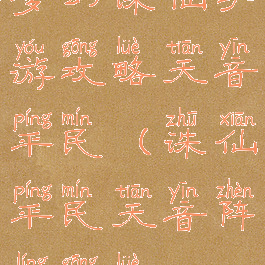 yóu gōng lüè tiān yīn
游攻略天音
píng mín zhū xiān
平民（诛仙
píng mín tiān yīn zhèn
平民天音阵